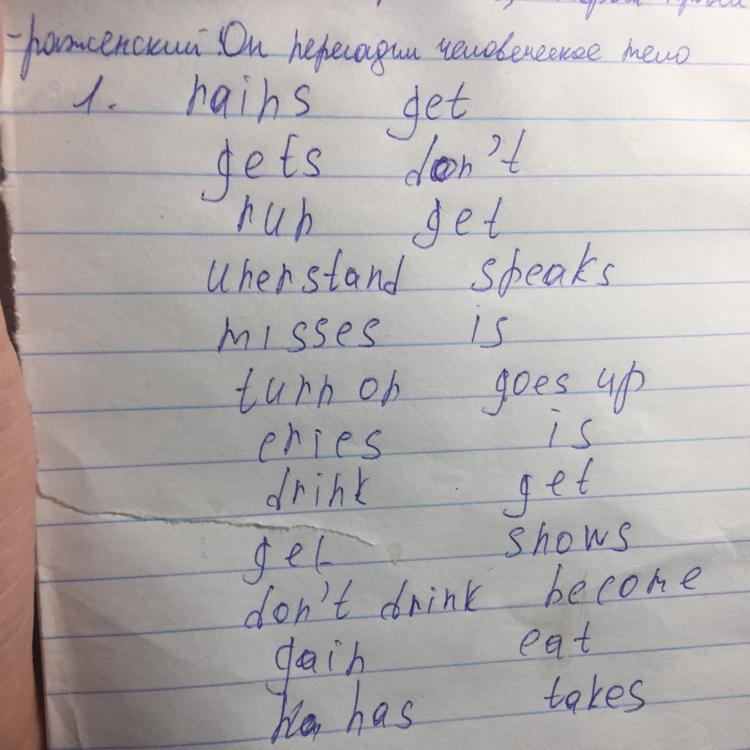 -раженский. Он пересадил человеческое тело
1. rains get
gets don't
run get
unerstand speaks
misses is
turn on goes up
cries is
drink get
get shows
don't drink become
gain eat
has takes